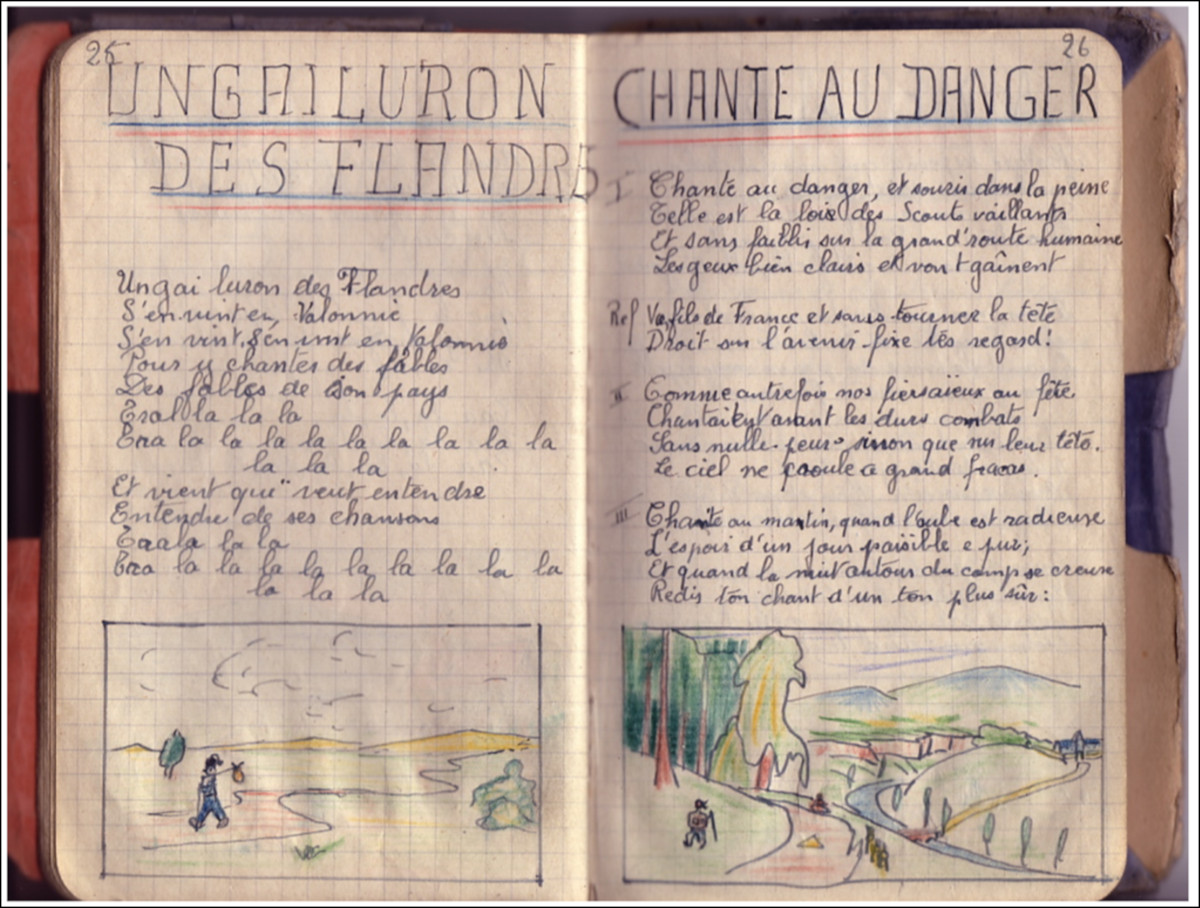 25
UN GAI LURON
DES FLANDRES
Un gai luron des Flandres
S'en vint en, Valonnie
S'en vint, s'en vint en Valonnie
Pour y chantes des fables
Des fables de son pays
Tralla la la
Tra la la la la la la la la
la la la
Et vient qui veut entendre
Entendre de ses chansons
Traala la la
Tra la la la la la la la la la
la la la
26
CHANTE AU DANGER
I Chante au danger, et souris dans la peine
Telle est la loix des Scouts vaillants
Et sans faiblis sur la grand'route humaine
Les yeux bien clairs et vont gaînent
Ref Va, fils de France et sans tourner la tête
Droit sur l'avenir fixe tes regard!
II Comme autrefois nos fiers aïeux au fête
Chantaient avant les durs combats
Sans nulle peur sinon que sus leur têto.
Le ciel ne croule a grand fracas.
III Chante au martin, quand l'aube est radieuse
L'espoir d'un jour paisible e pur;
Et quand la nuit autour du camp se creuse
Redis ton chant d'un ton plus sûr: